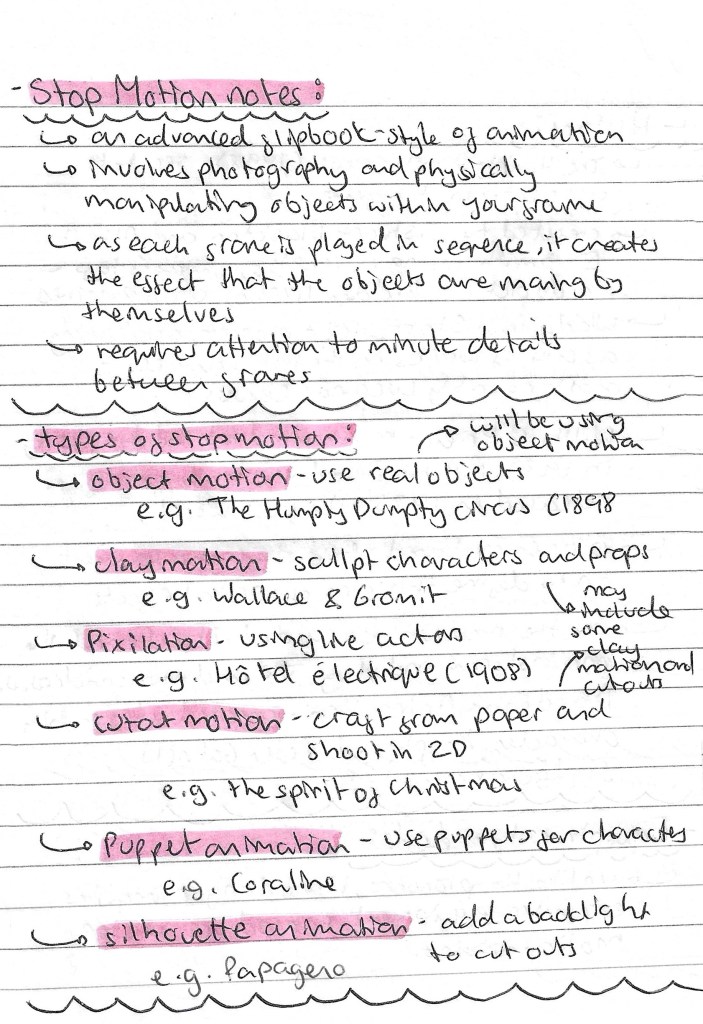 - Stop Motion notes:
↳ an advanced flipbook-style of animation
↳ involves photography and physically
manipulating objects within your frame
↳ as each frame is played in sequence, it creates
the effect that the objects are moving by
themselves
↳ requires attention to minute details
between frames
- types of stop motion:
→ will be using
object motion
↳ object motion - use real objects
e.g. The Humpty Dumpty circus (1898
↳ claymation - scullpt characters and props
e.g. Wallace & Gromit
↳ may
include
some
clay
mation and
cut outs
↳ Pixilation - using live actors
e.g. Hôtel électrique (1908)
↳ cutout motion - craft from paper and
shoot in 2D
e.g. the spirit of Christmas
↳ Puppet animation - use puppets for charactes
e.g. Coraline
↳ silhouette animation - add a backlight
to cut outs
e.g. Papageno